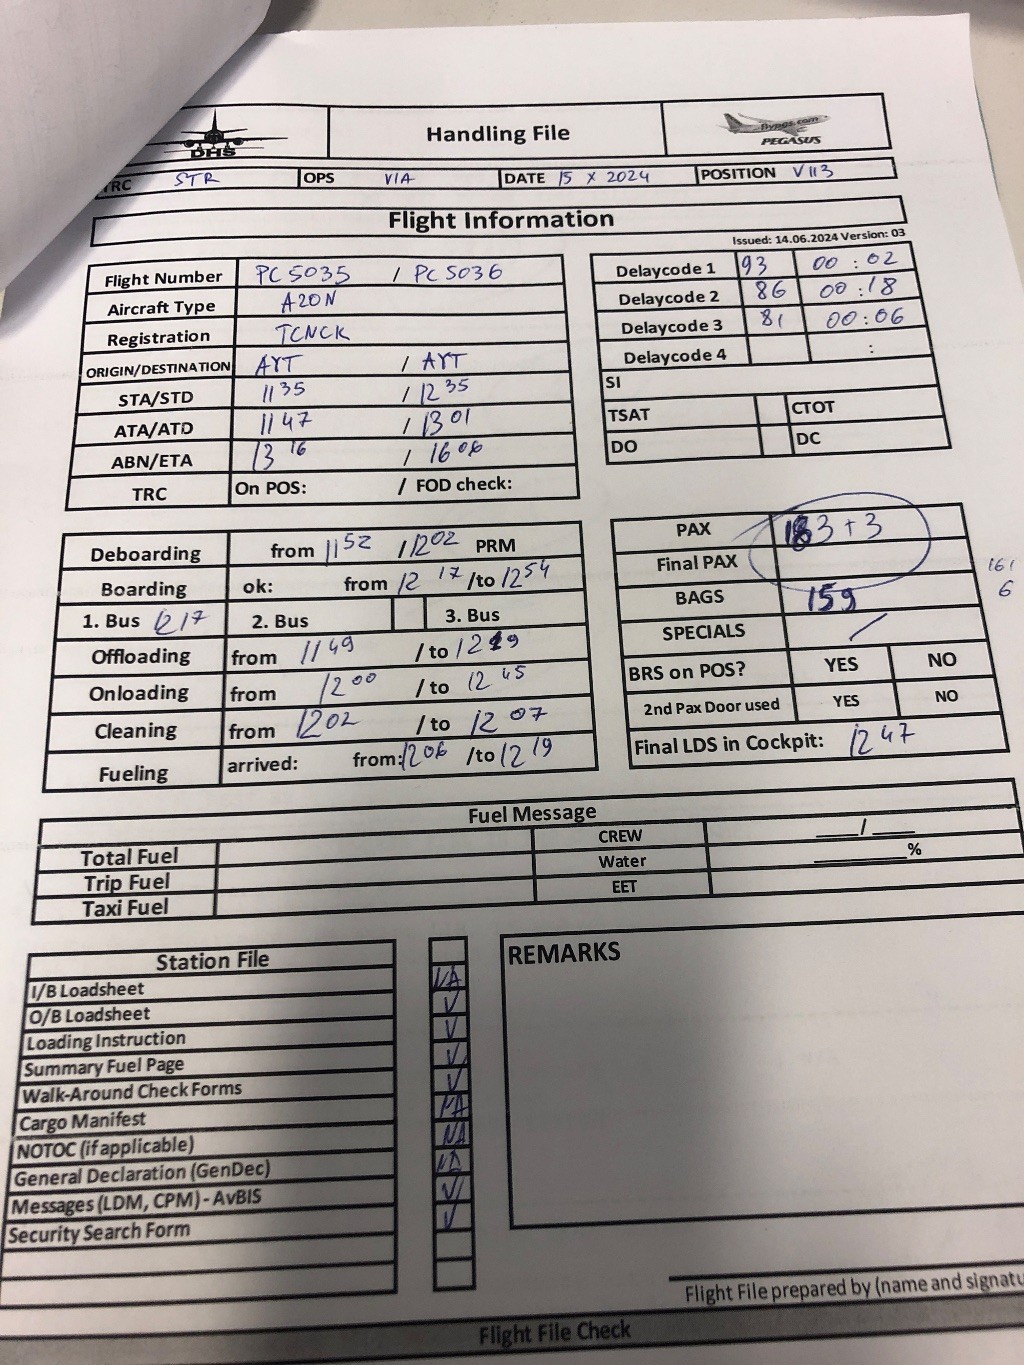 DHS
Handling File
flypgs.com
PEGASUS
TRC STR OPS VIA DATE 15 X 2024 POSITION V113
Flight Information
Issued: 14.06.2024 Version: 03
Flight Number PC 5035 / PC 5036
Aircraft Type A20N
Registration TCNCK
ORIGIN/DESTINATION AYT / AYT
STA/STD 1135 / 1235
ATA/ATD 1147 / 1301
ABN/ETA 1316 / 1606
TRC On POS: / FOD check:
Delaycode 1 93 00 : 02
Delaycode 2 86 00 : 18
Delaycode 3 81 00 : 06
Delaycode 4 :
SI
TSAT CTOT
DO DC
Deboarding from 1152 / 1202 PRM
Boarding ok: from 1217 /to 1254
1. Bus 1217 2. Bus 3. Bus
Offloading from 1149 / to 1219
Onloading from 1200 / to 1245
Cleaning from 1202 / to 1207
Fueling arrived: from: 1206 /to 1219
PAX 183 + 3
Final PAX
161
6
BAGS 159
SPECIALS /
BRS on POS? YES NO
2nd Pax Door used YES NO
Final LDS in Cockpit: 1247
Fuel Message
Total Fuel CREW ___/___
Trip Fuel Water ______%
Taxi Fuel EET
Station File
I/B Loadsheet NA
O/B Loadsheet V
Loading Instruction V
Summary Fuel Page V
Walk-Around Check Forms V
Cargo Manifest NA
NOTOC (if applicable) NA
General Declaration (GenDec) NA
Messages (LDM, CPM) - AvBIS V
Security Search Form V
REMARKS
Flight File prepared by (name and signatu
Flight File Check